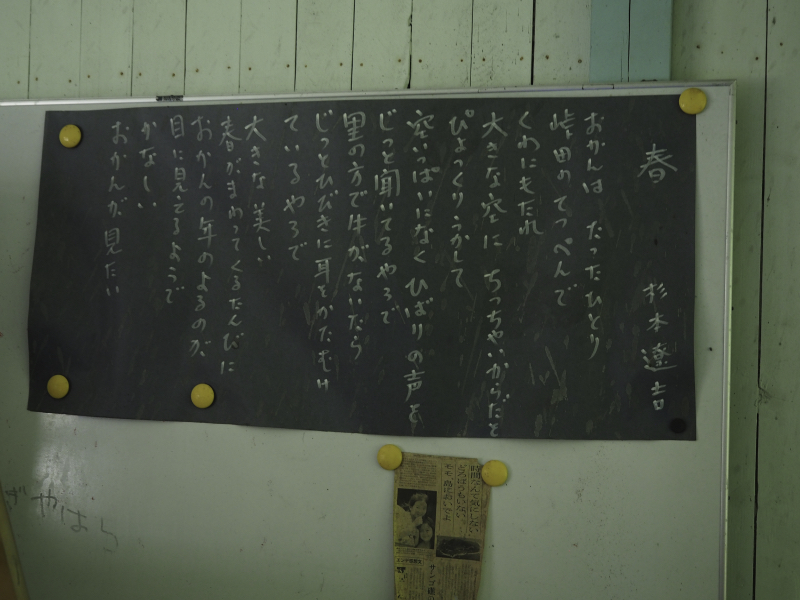 春
杉本 遼吉
おかんは たったひとり
峠田のてっぺんで
くわにもたれ
大きな空に ちっちゃいからだを
ぴょっくりうかして
空いっぱいになく ひばりの声を
じっと聞いてるやろで
里の方で牛がないたら
じっとひびきに耳をかたむけ
ているやろで
大きな美しい
春がまわってくるたんびに
おかんの年のよるのが
目に見えるようで
かなしい
おかんが見たい
やはら
時間なんて気にしない
どろぼうもいない。